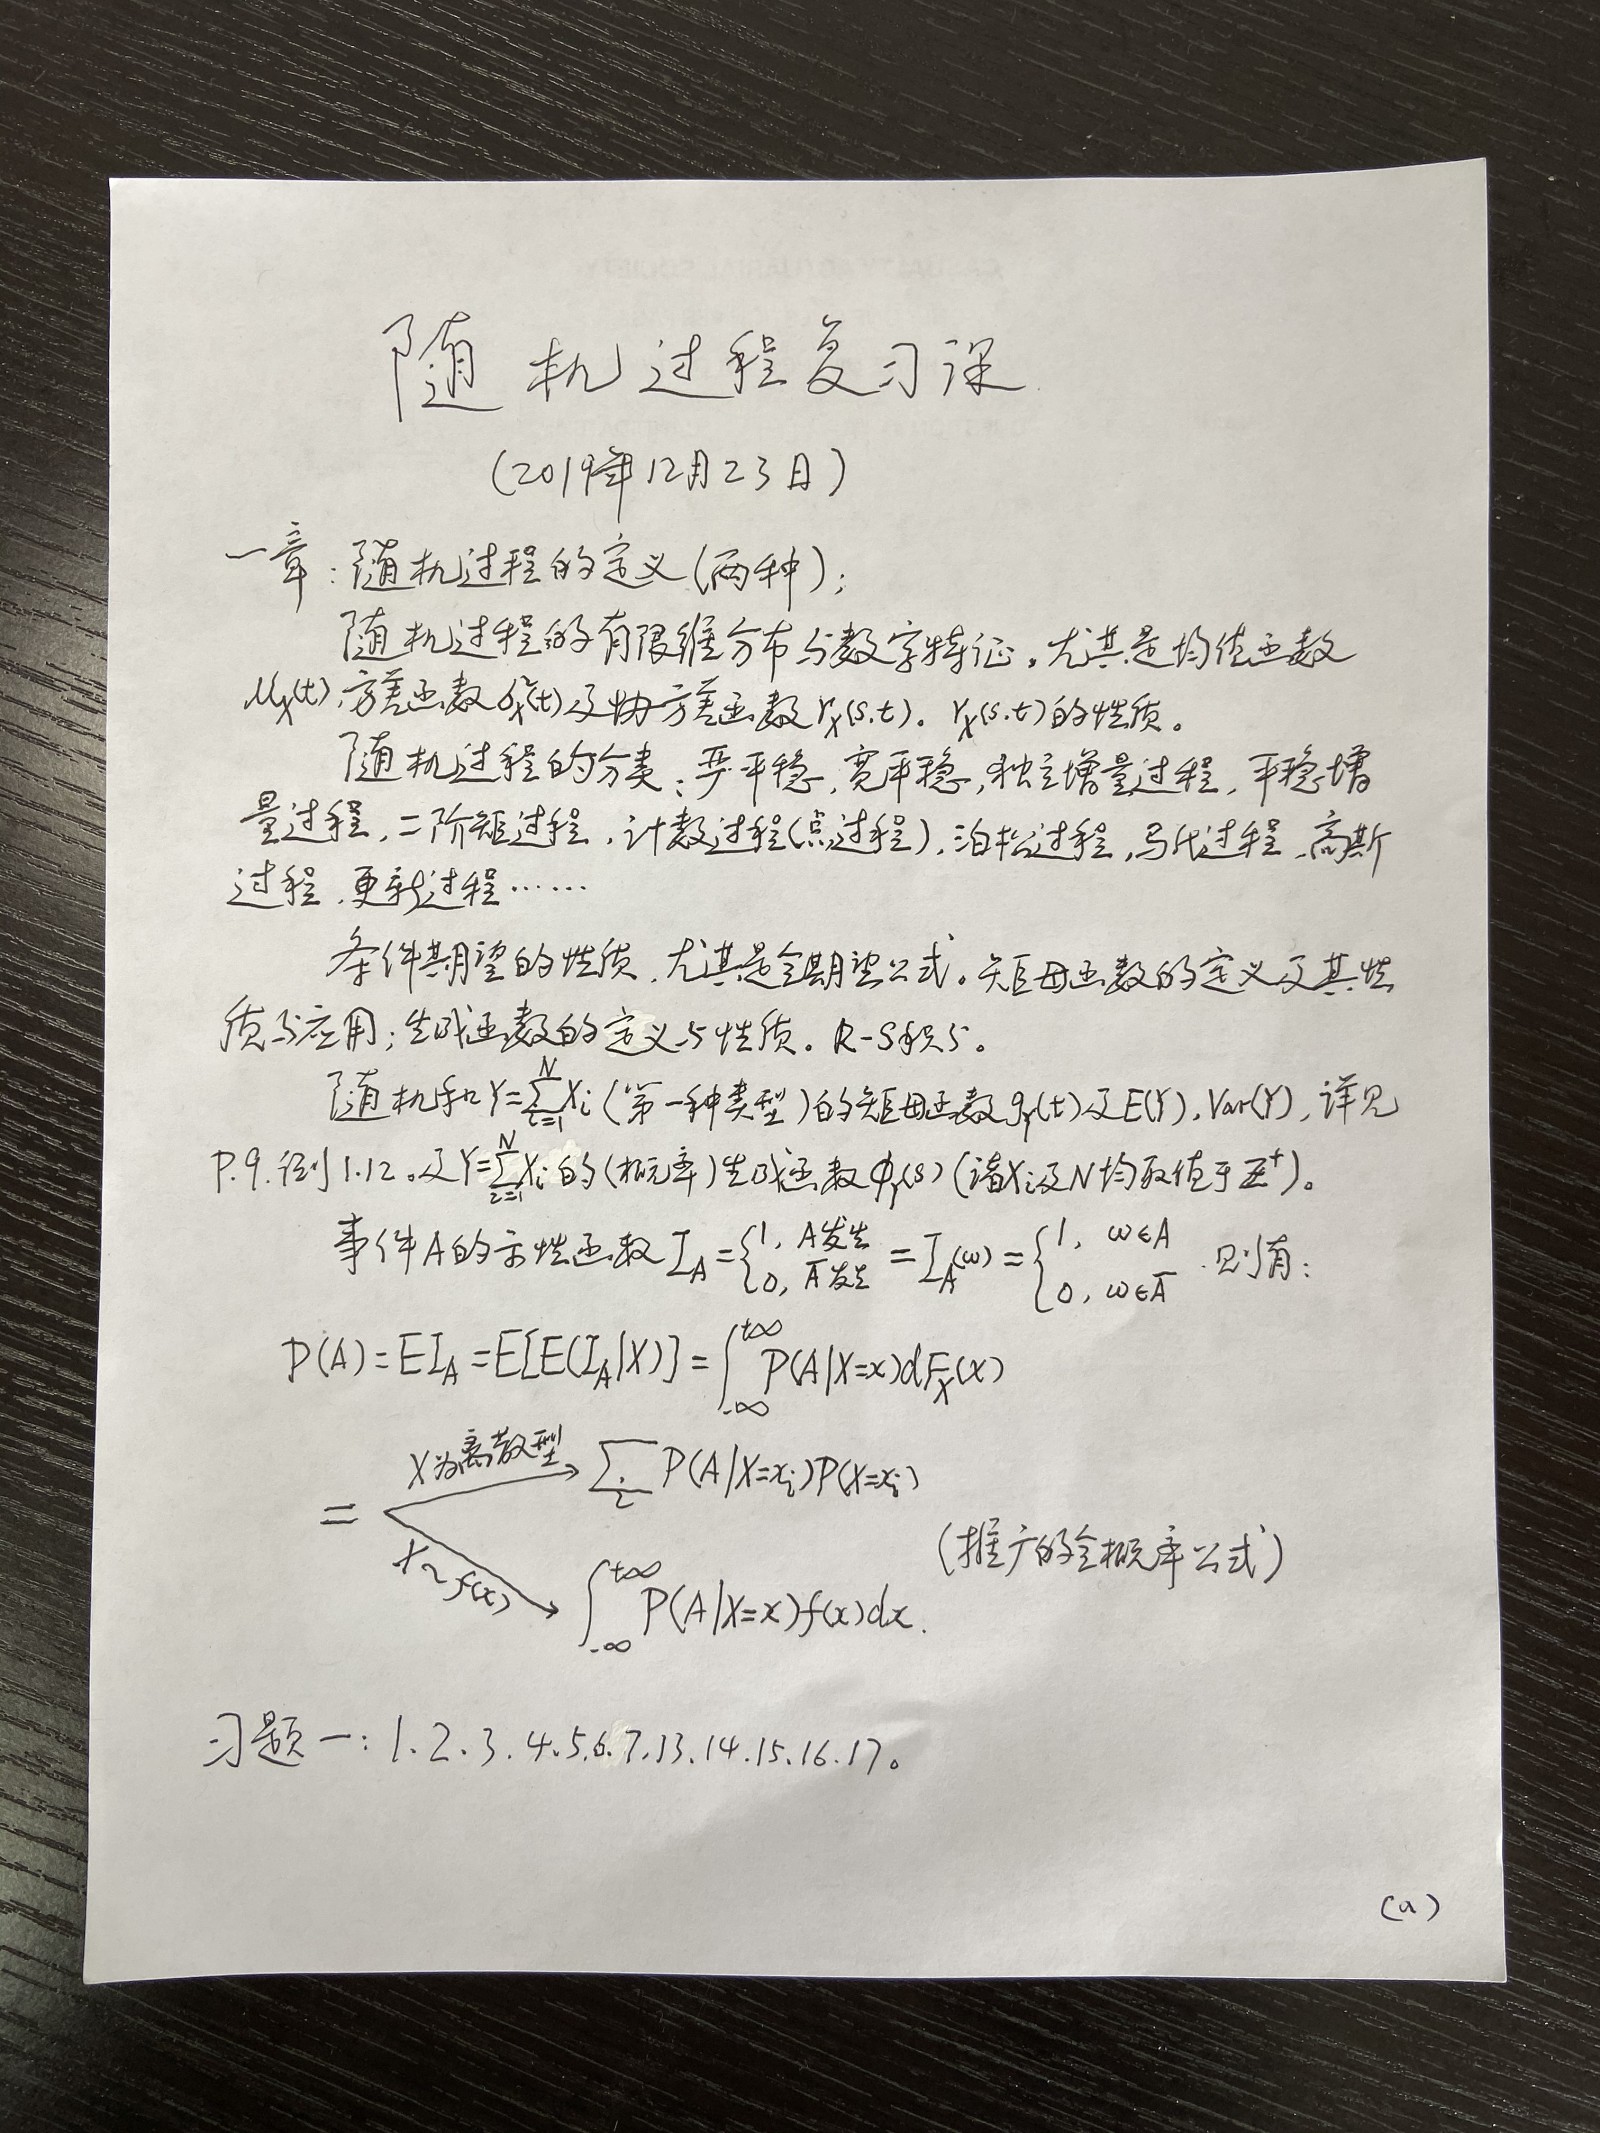 随机过程复习课
(2019年12月23日)
一章:随机过程的定义(两种);
随机过程的有限维分布与数字特征。尤其是均值函数
μ_X(t),方差函数σ²_X(t)及协方差函数r_X(s,t)。r_X(s,t)的性质。
随机过程的分类:严平稳,宽平稳,独立增量过程,平稳增
量过程,二阶矩过程,计数过程(点过程),泊松过程,马氏过程,高斯
过程,更新过程……
条件期望的性质,尤其是全期望公式。矩母函数的定义及其性
质与应用;生成函数的定义与性质。R-S积分。
随机和Y=∑_{i=1}^{N}X_i(第一种类型)的矩母函数g_Y(t)及E(Y),Var(Y),详见
P.9.例1.12。及Y=∑_{i=1}^{N}X_i的(概率)生成函数ϕ_Y(s)(诸X_i及N均取值于Z⁺)。
事件A的示性函数I_A={1, A发生; 0, Ā发生 = I_A(ω)={1, ω∈A; 0, ω∈Ā .则有:
P(A)=EI_A=E[E(I_A|X)]=∫_{-∞}^{+∞}P(A|X=x)dF_X(x)
X为离散型 ∑_i P(A|X=x_i)P(X=x_i)
=
(推广的全概率公式)
X~f(x) ∫_{-∞}^{+∞}P(A|X=x)f(x)dx.
习题一:1.2.3.4.5.6.7.13.14.15.16.17。
(a)